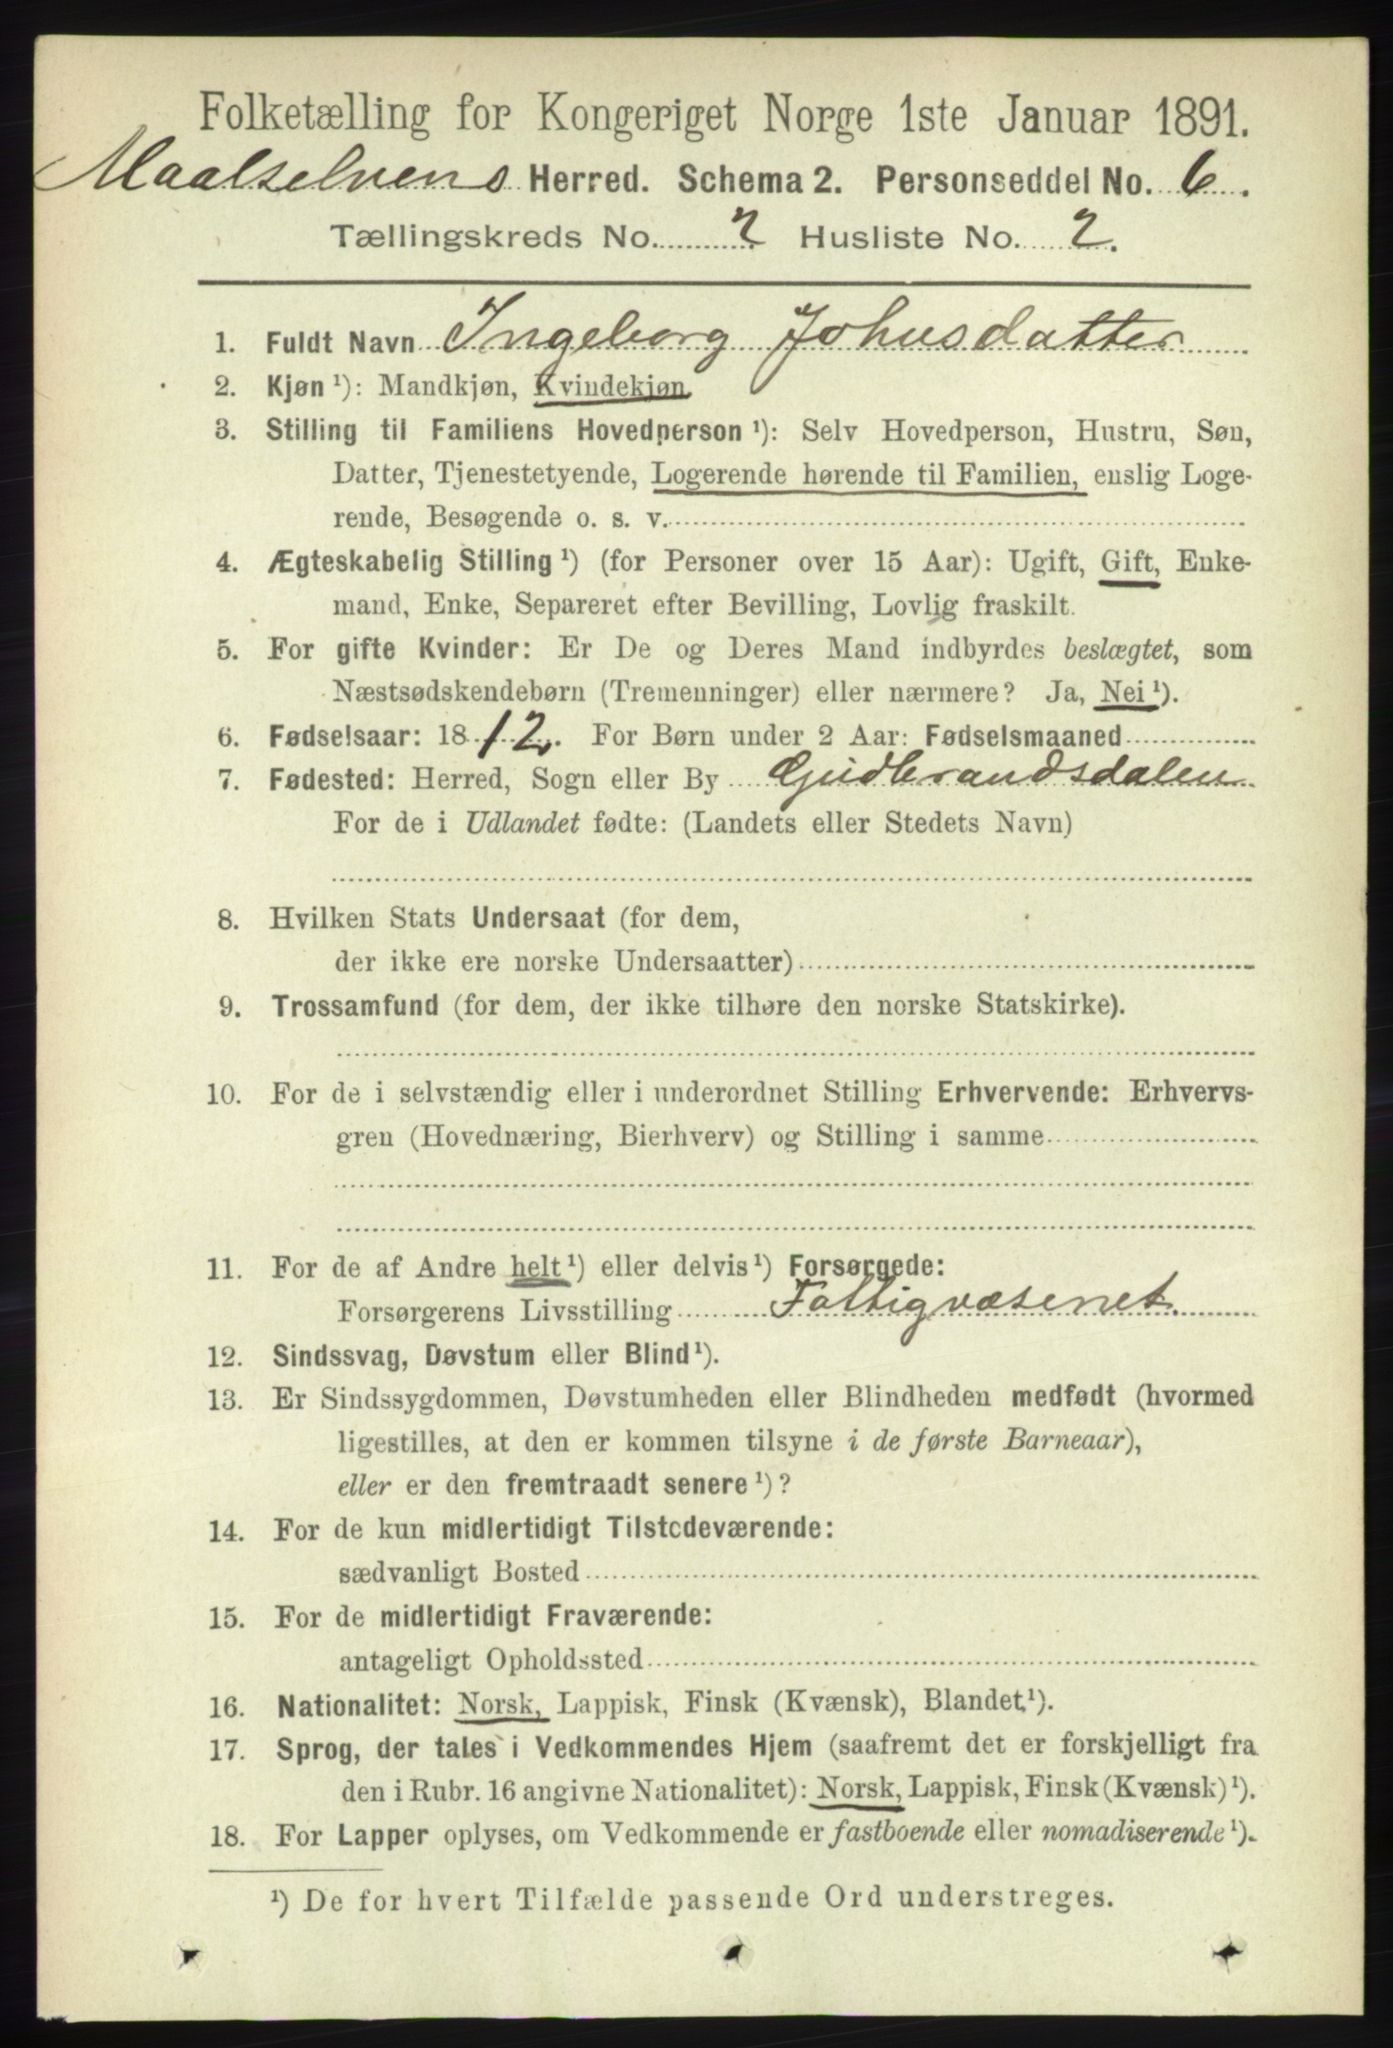 Folketælling for Kongeriget Norge 1ste Januar 1891.
Maalselvens Herred. Schema 2. Personseddel No. 6.
Tællingskreds No. 2 Husliste No. 2.
1. Fuldt Navn Ingeborg Johnsdatter
2. Kjøn ¹): Mandkjøn, Kvindekjøn
3. Stilling til Familiens Hovedperson ¹): Selv Hovedperson, Hustru, Søn,
Datter, Tjenestetyende, Logerende hørende til Familien, enslig Loge-
rende, Besøgende o. s. v.
4. Ægteskabelig Stilling ¹) (for Personer over 15 Aar): Ugift, Gift, Enke-
mand, Enke, Separeret efter Bevilling, Lovlig fraskilt.
5. For gifte Kvinder: Er De og Deres Mand indbyrdes beslægtet, som
Næstsødskendebørn (Tremenninger) eller nærmere? Ja, Nei ¹).
6. Fødselsaar: 1812. For Børn under 2 Aar: Fødselsmaaned
7. Fødested: Herred, Sogn eller By Gudbrandsdalen
For de i Udlandet fødte: (Landets eller Stedets Navn)
8. Hvilken Stats Undersaat (for dem,
der ikke ere norske Undersaatter)
9. Trossamfund (for dem, der ikke tilhøre den norske Statskirke).
10. For de i selvstændig eller i underordnet Stilling Erhvervende: Erhvervs-
gren (Hovednæring, Bierhverv) og Stilling i samme
11. For de af Andre helt ¹) eller delvis ¹) Forsørgede:
Forsørgerens Livsstilling Fattigvæsenet.
12. Sindssvag, Døvstum eller Blind ¹).
13. Er Sindssygdommen, Døvstumheden eller Blindheden medfødt (hvormed
ligestilles, at den er kommen tilsyne i de første Barneaar),
eller er den fremtraadt senere ¹)?
14. For de kun midlertidigt Tilstedeværende:
sædvanligt Bosted
15. For de midlertidigt Fraværende:
antageligt Opholdssted
16. Nationalitet: Norsk, Lappisk, Finsk (Kvænsk), Blandet ¹).
17. Sprog, der tales i Vedkommendes Hjem (saafremt det er forskjelligt fra
den i Rubr. 16 angivne Nationalitet): Norsk, Lappisk, Finsk (Kvænsk) ¹).
18. For Lapper oplyses, om Vedkommende er fastboende eller nomadiserende ¹).
¹) De for hvert Tilfælde passende Ord understreges.